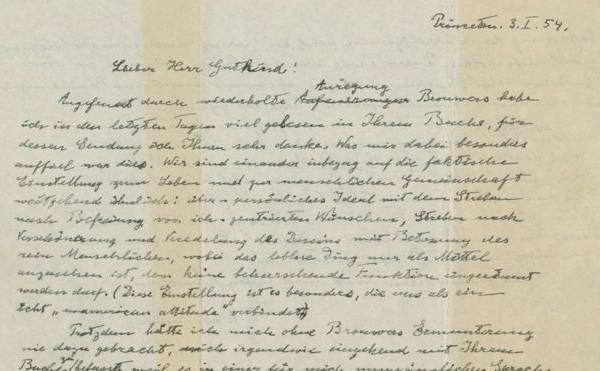 Princeton. 3. I. 54.
Lieber Herr Gutkind!
Anregung
Angefeuert durch wiederholte Brouwers habe
ich in den letzten Tagen viel gelesen in Ihrem Buche, für
dessen Sendung ich Ihnen sehr danke. Was mir dabei besonders
auffiel war dies. Wir sind einander inbezug auf die faktische
Einstellung zum Leben und zur menschlichen Gemeinschaft
weitgehend ähnlich: über-persönliches Ideal mit dem Streben
nach Befreiung von ich-zentrierten Wünschen, Streben nach
Verschönerung und Veredelung des Daseins mit Betonung des
rein Menschlichen, wobei das leblose Ding nur als Mittel
anzusehen ist, dem keine beherrschende Funktion eingeräumt
werden darf. (Diese Einstellung ist es besonders, die uns als ein
echt „unamerican attitude" verbindet)
Trotzdem hätte ich mich ohne Brouwers Ermunterung
nie dazu gebracht, mich irgendwie eingehend mit Ihrem
Buche weil es in einer für mich